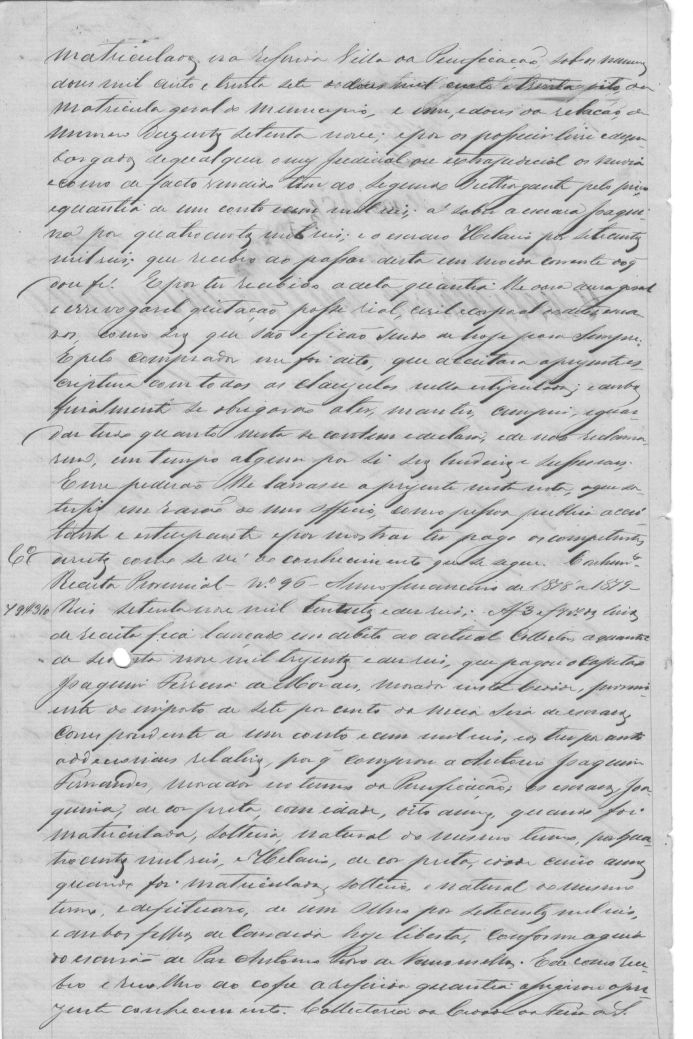 matriculados na referida Villa da Purificação, sob os numeros
dous mil cento e trinta sete e dous mil cento e trinta oito da
matricula geral do municipio, e um, e dous da relação de
numero duzentos setenta nove; e por os possuir livre e desem
bargados de qualquer onus judicial ou extrajudicial os
como de facto vendido tem ao segundo outhorgante pelo preço
e quantia de um conto e cem mil reis; a saber a escrava Joaqui
na por quatrocentos mil reis; e o escravo Helario por setecentos
mil reis; que recebeo ao passar desta em moeda corrente do q
dou fé. E por ter recebido a dita quantia lhe dava geral
e irrevogavel quitação, posse real, civil corporal dos ditos escra
vos, como diz que são e ficão sendo de hoje para sempre.
E pelo comprador me foi dito, que aceitava a prezente es
criptura com todas as clauzulas nella estipuladas; e ambos
finalmente se obrigarão a ter, manter, cumprir, e guar
dar tudo quanto nesta se contem e declara, e de não reclama
rem, em tempo algum por si seus herdeiros e sucessores.
E me pedirão lhe lavrasse a prezente nesta nota, o que sa
tisfiz em razão do meu officio, como pessoa publica accei
tante e estipulante e por mostrar ter pago os competentes
direitos como se vê do conhecimento que se segue. Conhecimto
Receita Provincial - nº 96 - Anno financeiro de 1878 a 1879 -
79$310 Reis setenta nove mil trezentos e dez reis; Af 3 e do livro
de receita fica lançado em debito ao actual Collector a quantia
de setenta nove mil trezentos e dez reis, que pagou o Capitão
Joaquim Ferreira de Moraes, morador nesta Cidade, proveni
ente do imposto de sete por cento da meia siza de escravos
correspondente a um conto e cem mil reis, e os tres por cento
addicionaes relativos, por q comprou a Antonio Joaquim
Fernandes, morador no termo da Purificação, os escravos, Joa
quina, de cor preta, com idade, oito annos, quando foi
matriculada, solteira natural do mesmo termo, por qua
trocentos mil reis, e Helario, de cor preta, idade cinco annos
quando foi matriculado, solteiro, e natural do mesmo
termo, e defeituozo, de um olho por setecentos mil reis,
e ambos filhos de hoje liberta, conforme a guia
do escrivão de Paz Antonio de Vasconcellos. E de como rece
beo e recolheo ao cofre a referida quantia assignou o pre
zente conhecimento. Collectoria da Cidade da Feira de S.